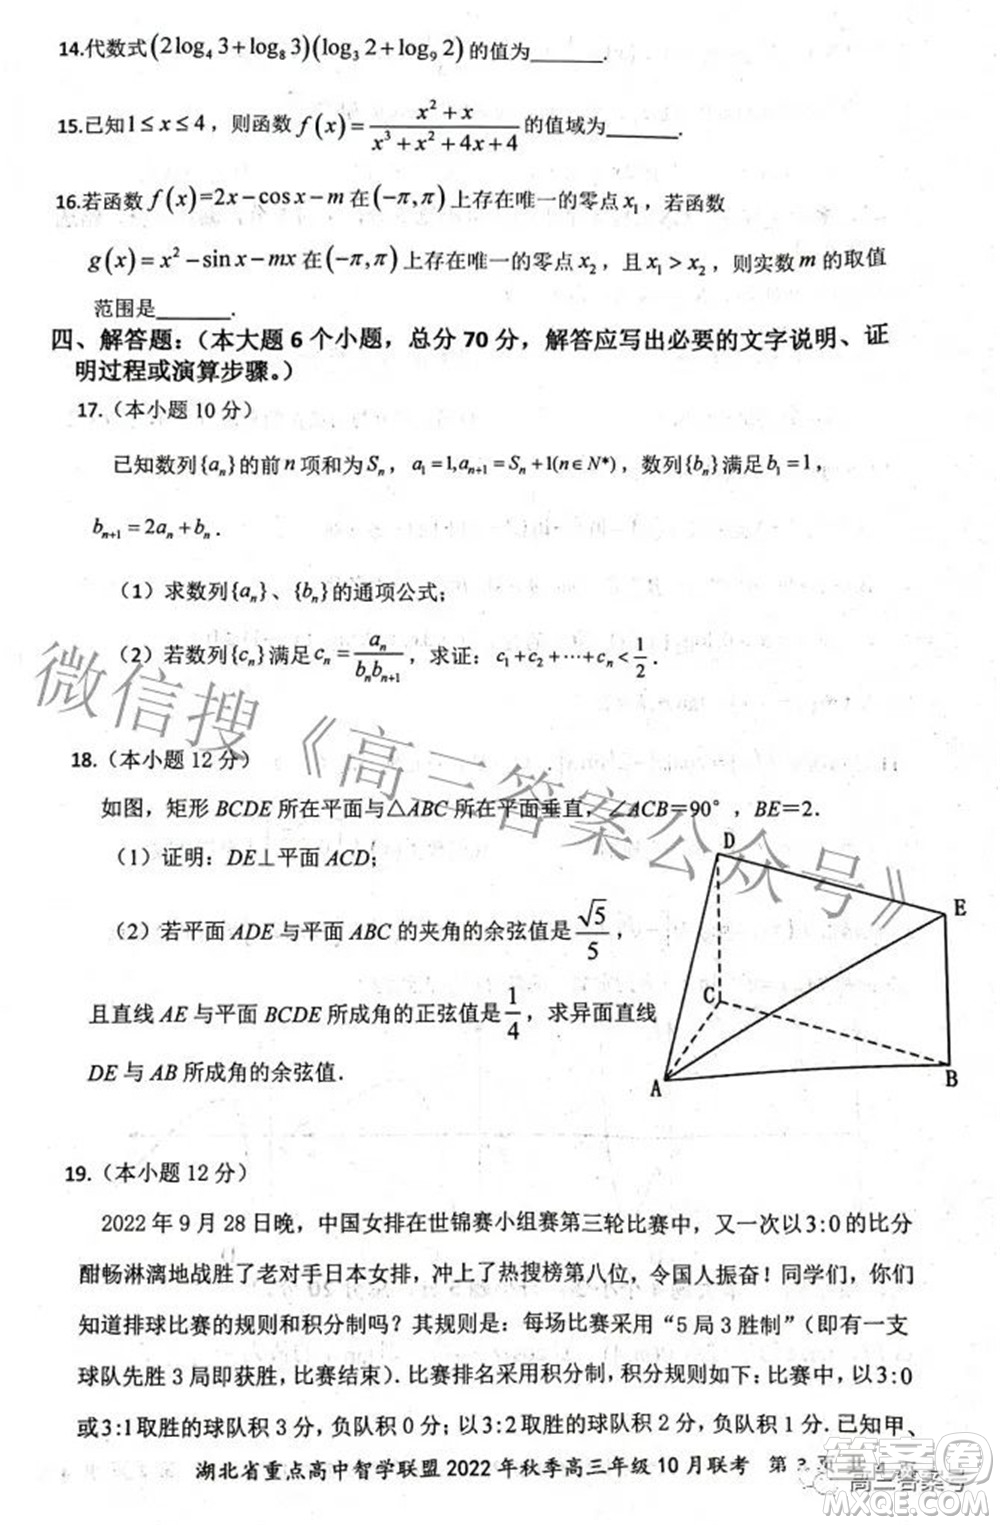 14.代数式(2log₄3+log₈3)(log₃2+log₉2)的值为______.
15.已知1≤x≤4，则函数f(x)=(x²+x)/(x³+x²+4x+4)的值域为______.
16.若函数f(x)=2x-cosx-m在(-π,π)上存在唯一的零点x₁，若函数
g(x)=x²-sinx-mx在(-π,π)上存在唯一的零点x₂，且x₁>x₂，则实数m的取值
范围是______.
四、解答题：（本大题6个小题，总分70分，解答应写出必要的文字说明、证
明过程或演算步骤。）
17.（本小题10分）
已知数列{aₙ}的前n项和为Sₙ，a₁=1,aₙ₊₁=Sₙ+1(n∈N*)，数列{bₙ}满足b₁=1，
bₙ₊₁=2aₙ+bₙ.
（1）求数列{aₙ}、{bₙ}的通项公式；
（2）若数列{cₙ}满足cₙ=aₙ/(bₙbₙ₊₁)，求证：c₁+c₂+⋯+cₙ<1/2.
18.（本小题12分）
如图，矩形BCDE所在平面与△ABC所在平面垂直，∠ACB=90°，BE=2.
（1）证明：DE⊥平面ACD；
（2）若平面ADE与平面ABC的夹角的余弦值是√5/5，
且直线AE与平面BCDE所成角的正弦值是1/4，求异面直线
DE与AB所成角的余弦值.
D
E
C
A
B
19.（本小题12分）
2022年9月28日晚，中国女排在世锦赛小组赛第三轮比赛中，又一次以3:0的比分
酣畅淋漓地战胜了老对手日本女排，冲上了热搜榜第八位，令国人振奋！同学们，你们
知道排球比赛的规则和积分制吗？其规则是：每场比赛采用“5局3胜制”（即有一支
球队先胜3局即获胜，比赛结束）.比赛排名采用积分制，积分规则如下：比赛中，以3:0
或3:1取胜的球队积3分，负队积0分；以3:2取胜的球队积2分，负队积1分.已知甲、
湖北省重点高中智学联盟2022年秋季高三年级10月联考 第3页 共
微信搜《高三答案公众号》
高三答案号
答案圈
MXQE.COM